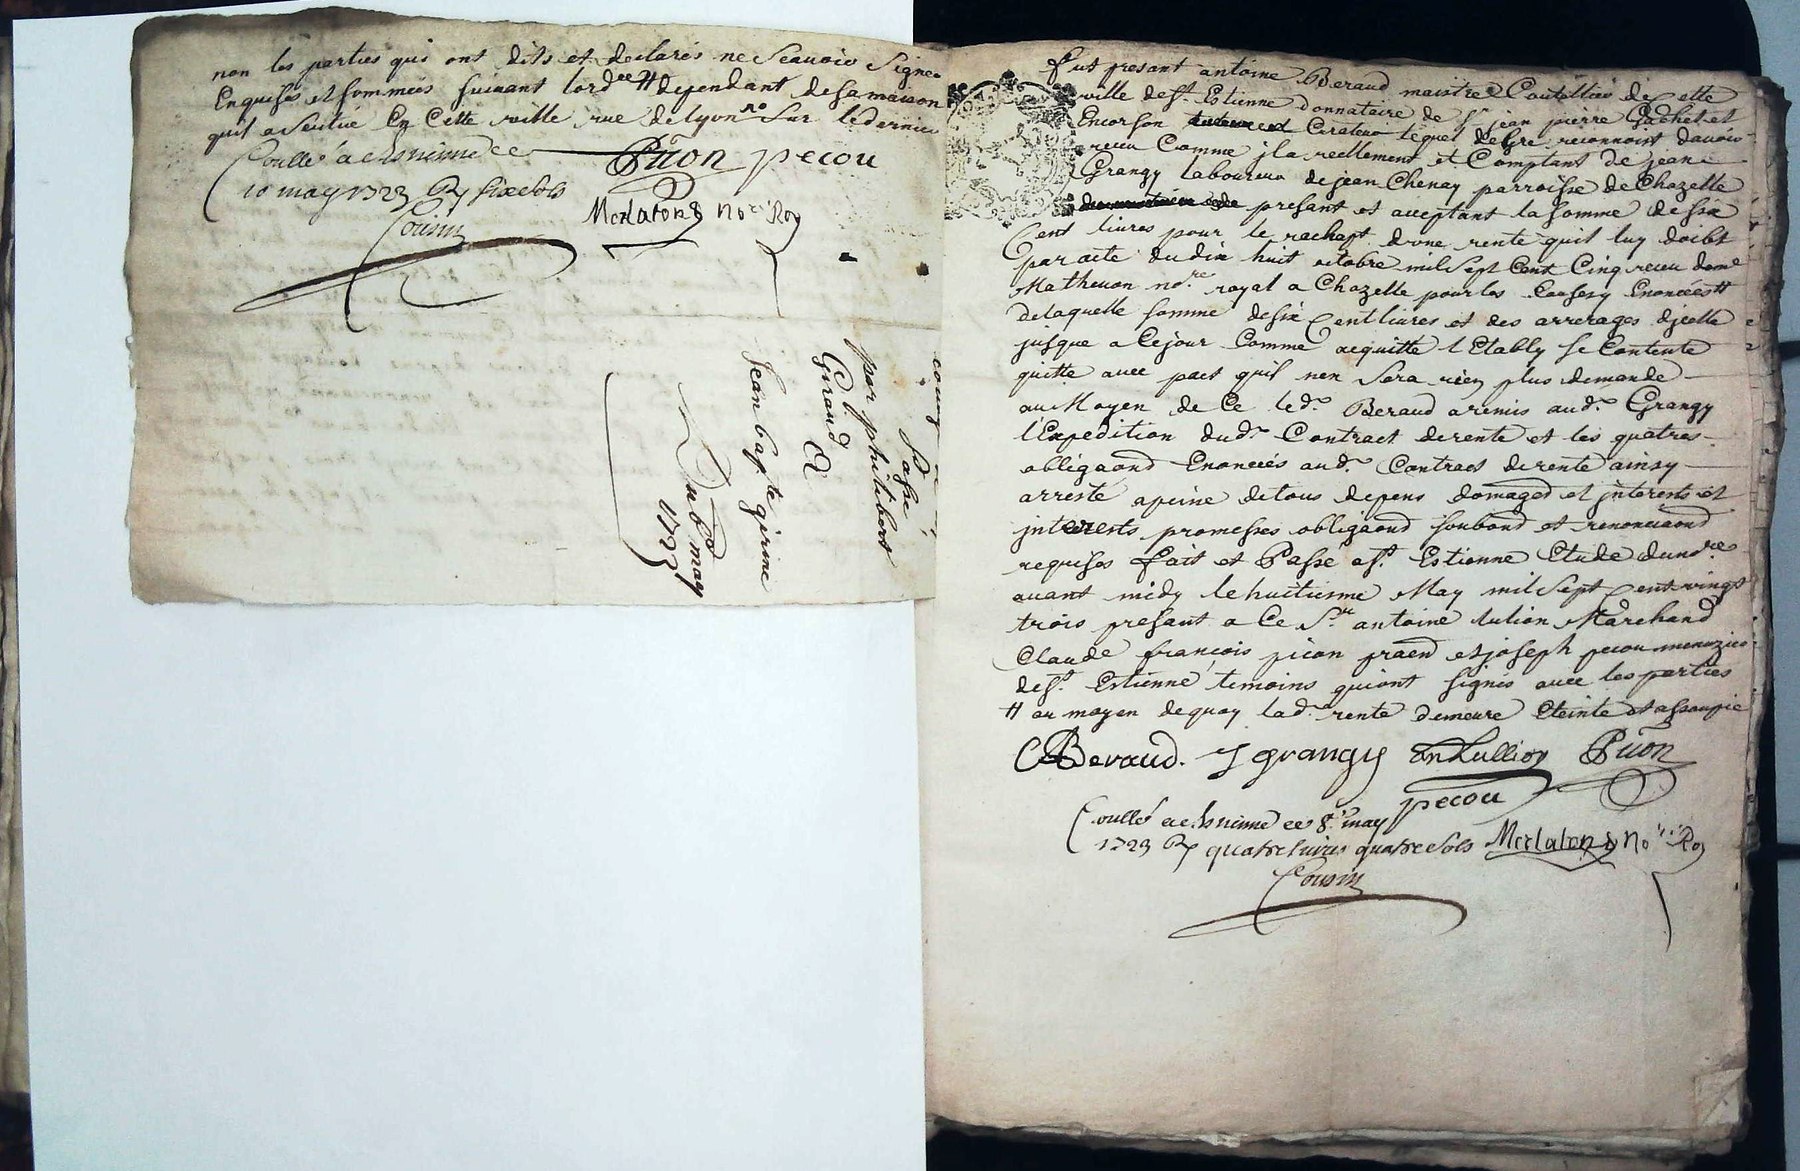 non les parties qui ont dits et declarés ne Scavoir Signer
Enquises et sommées suivant lord.ce # dependant de sa maison
quil a scitué En Cette ville rue de lyon sur le dernier
Coullé a st esnienne ce
10 may 1723 Rx six sols
Cousin
Picon pecou
Merlaton No.re Roy
courg
Passé
par philibert
Giraud
A
Jean bapte gerine
Du 8 may
1723
fut presant antoine Beraud maistre Coutellier de cette
ville de st. Estienne donnataire de sr. jean pierre Gachet et
Encor son Curateur lequel de gré reconnoist davoir
receu Comme jl a reellement et Comptant de jean
Grangy laboureur de jean Chenay parroisse de Chazelle
presant et acceptant la somme de six
Cent livres pour le rachapt dune rente quil luy doibt
par acte du dix huit octobre mil Sept Cent Cinq receu de me
Matheuon no.re royal a Chazelle pour les Causes y Enoncées #
de laquelle somme de six Cent livres et des arrerages dicelle
jusque a Cejour Comme acquitté l Etably se Contente
quitte avec pact quil nen sera rien plus demandé
au Moyen de Ce led.t Beraud a remis aud.t Grangy
l'Expedition dud.t Contract de rente et les quatres
obliga͠ons Enoncées aud.t Contract de rente ainsy
arresté a peine de tous depens domages et jnterests et
jnterests promesses obliga͠ons soub͠ons et renoncia͠ons
requises fait et Passé a st. Estienne Etude du no.re
avant midy le huitiesme May mil Sept Cent vingt
trois presant a Ce Sr. antoine lulion Marchand
Claude françois picon praen et joseph pecou menuzier
de st. Estienne temoins qui ont signés avec les parties
# au moyen de quoy lad.te rente demeure Eteinte et assoupie
Beraud. J grangy An Lullion Picon
pecou
Coullé a st esnienne ce 8. may
1723 Rx quatre livres quatre sols Merlaton No.re Roy
Cousin